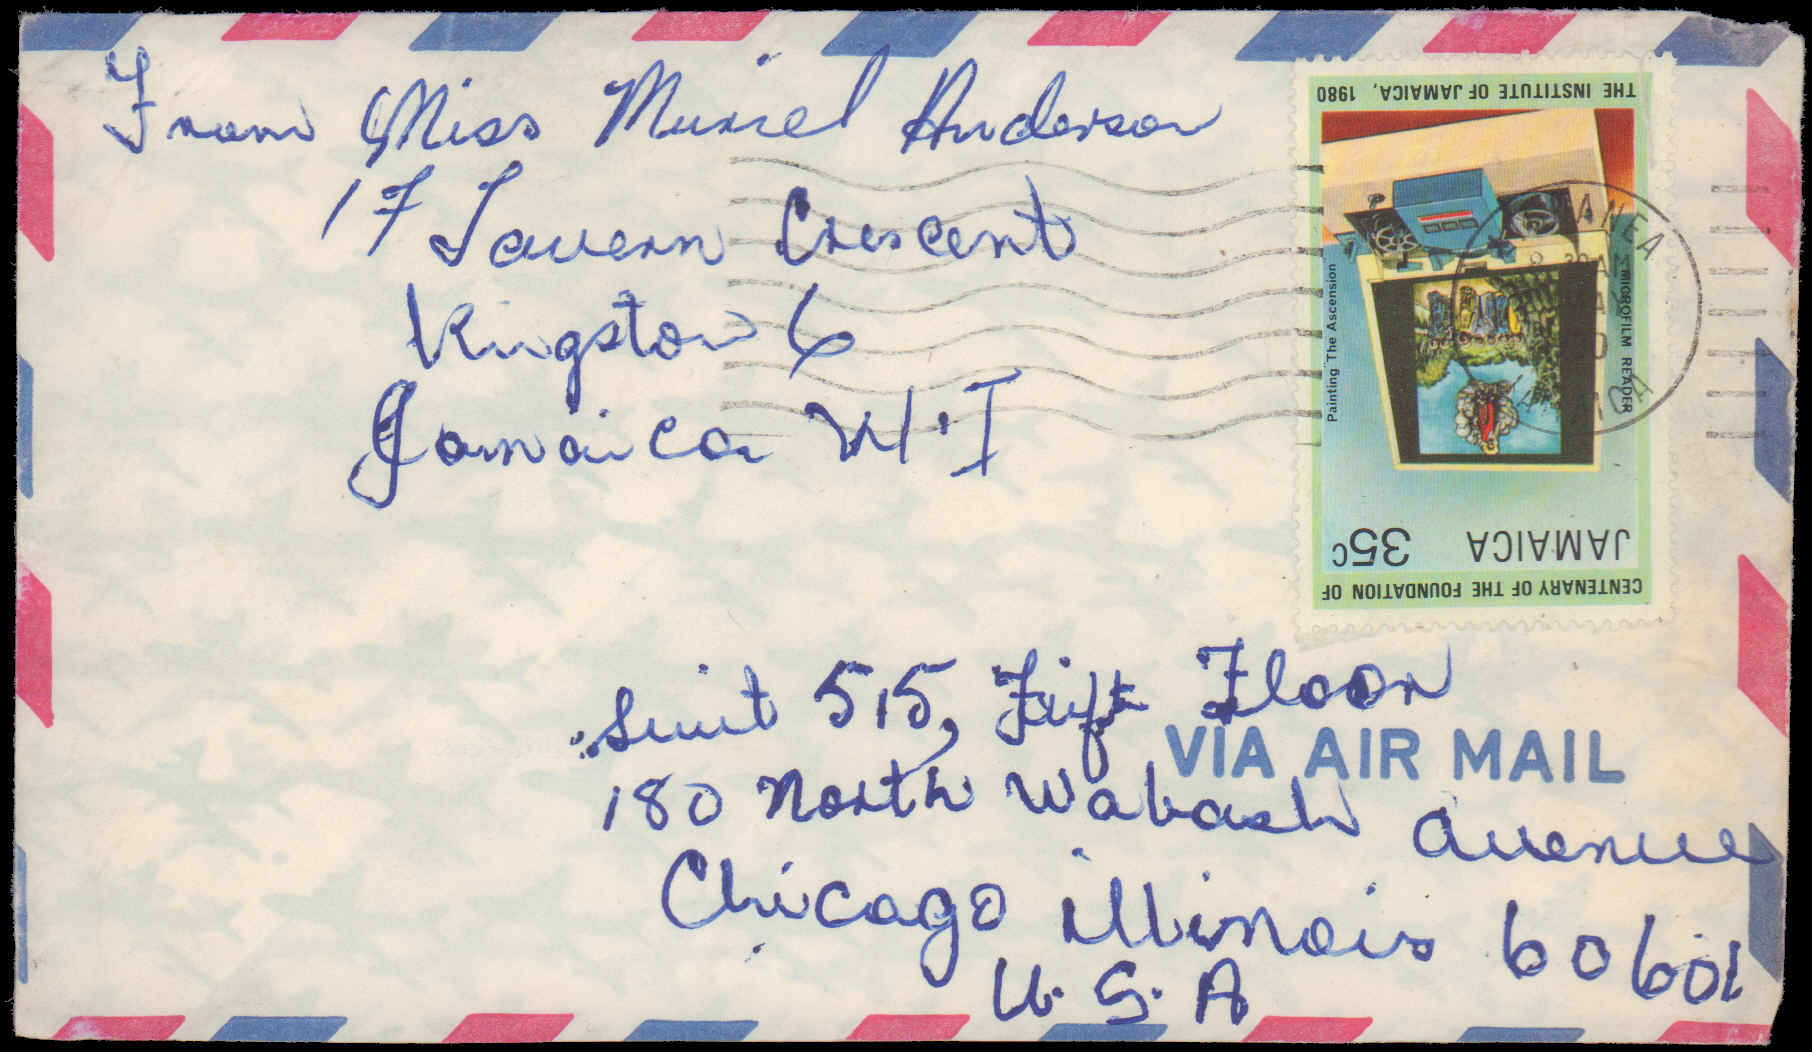 From Miss Muriel Anderson
17 Tavern Crescent
Kingston 6
Jamaica W.I
THE INSTITUTE OF JAMAICA, 1980
Painting The Ascension
MICROFILM READER
JAMAICA 35c
CENTENARY OF THE FOUNDATION OF
Suit 515, Fift Floor
VIA AIR MAIL
180 North Wabash Avenue
Chicago illinois 60601
U.S.A